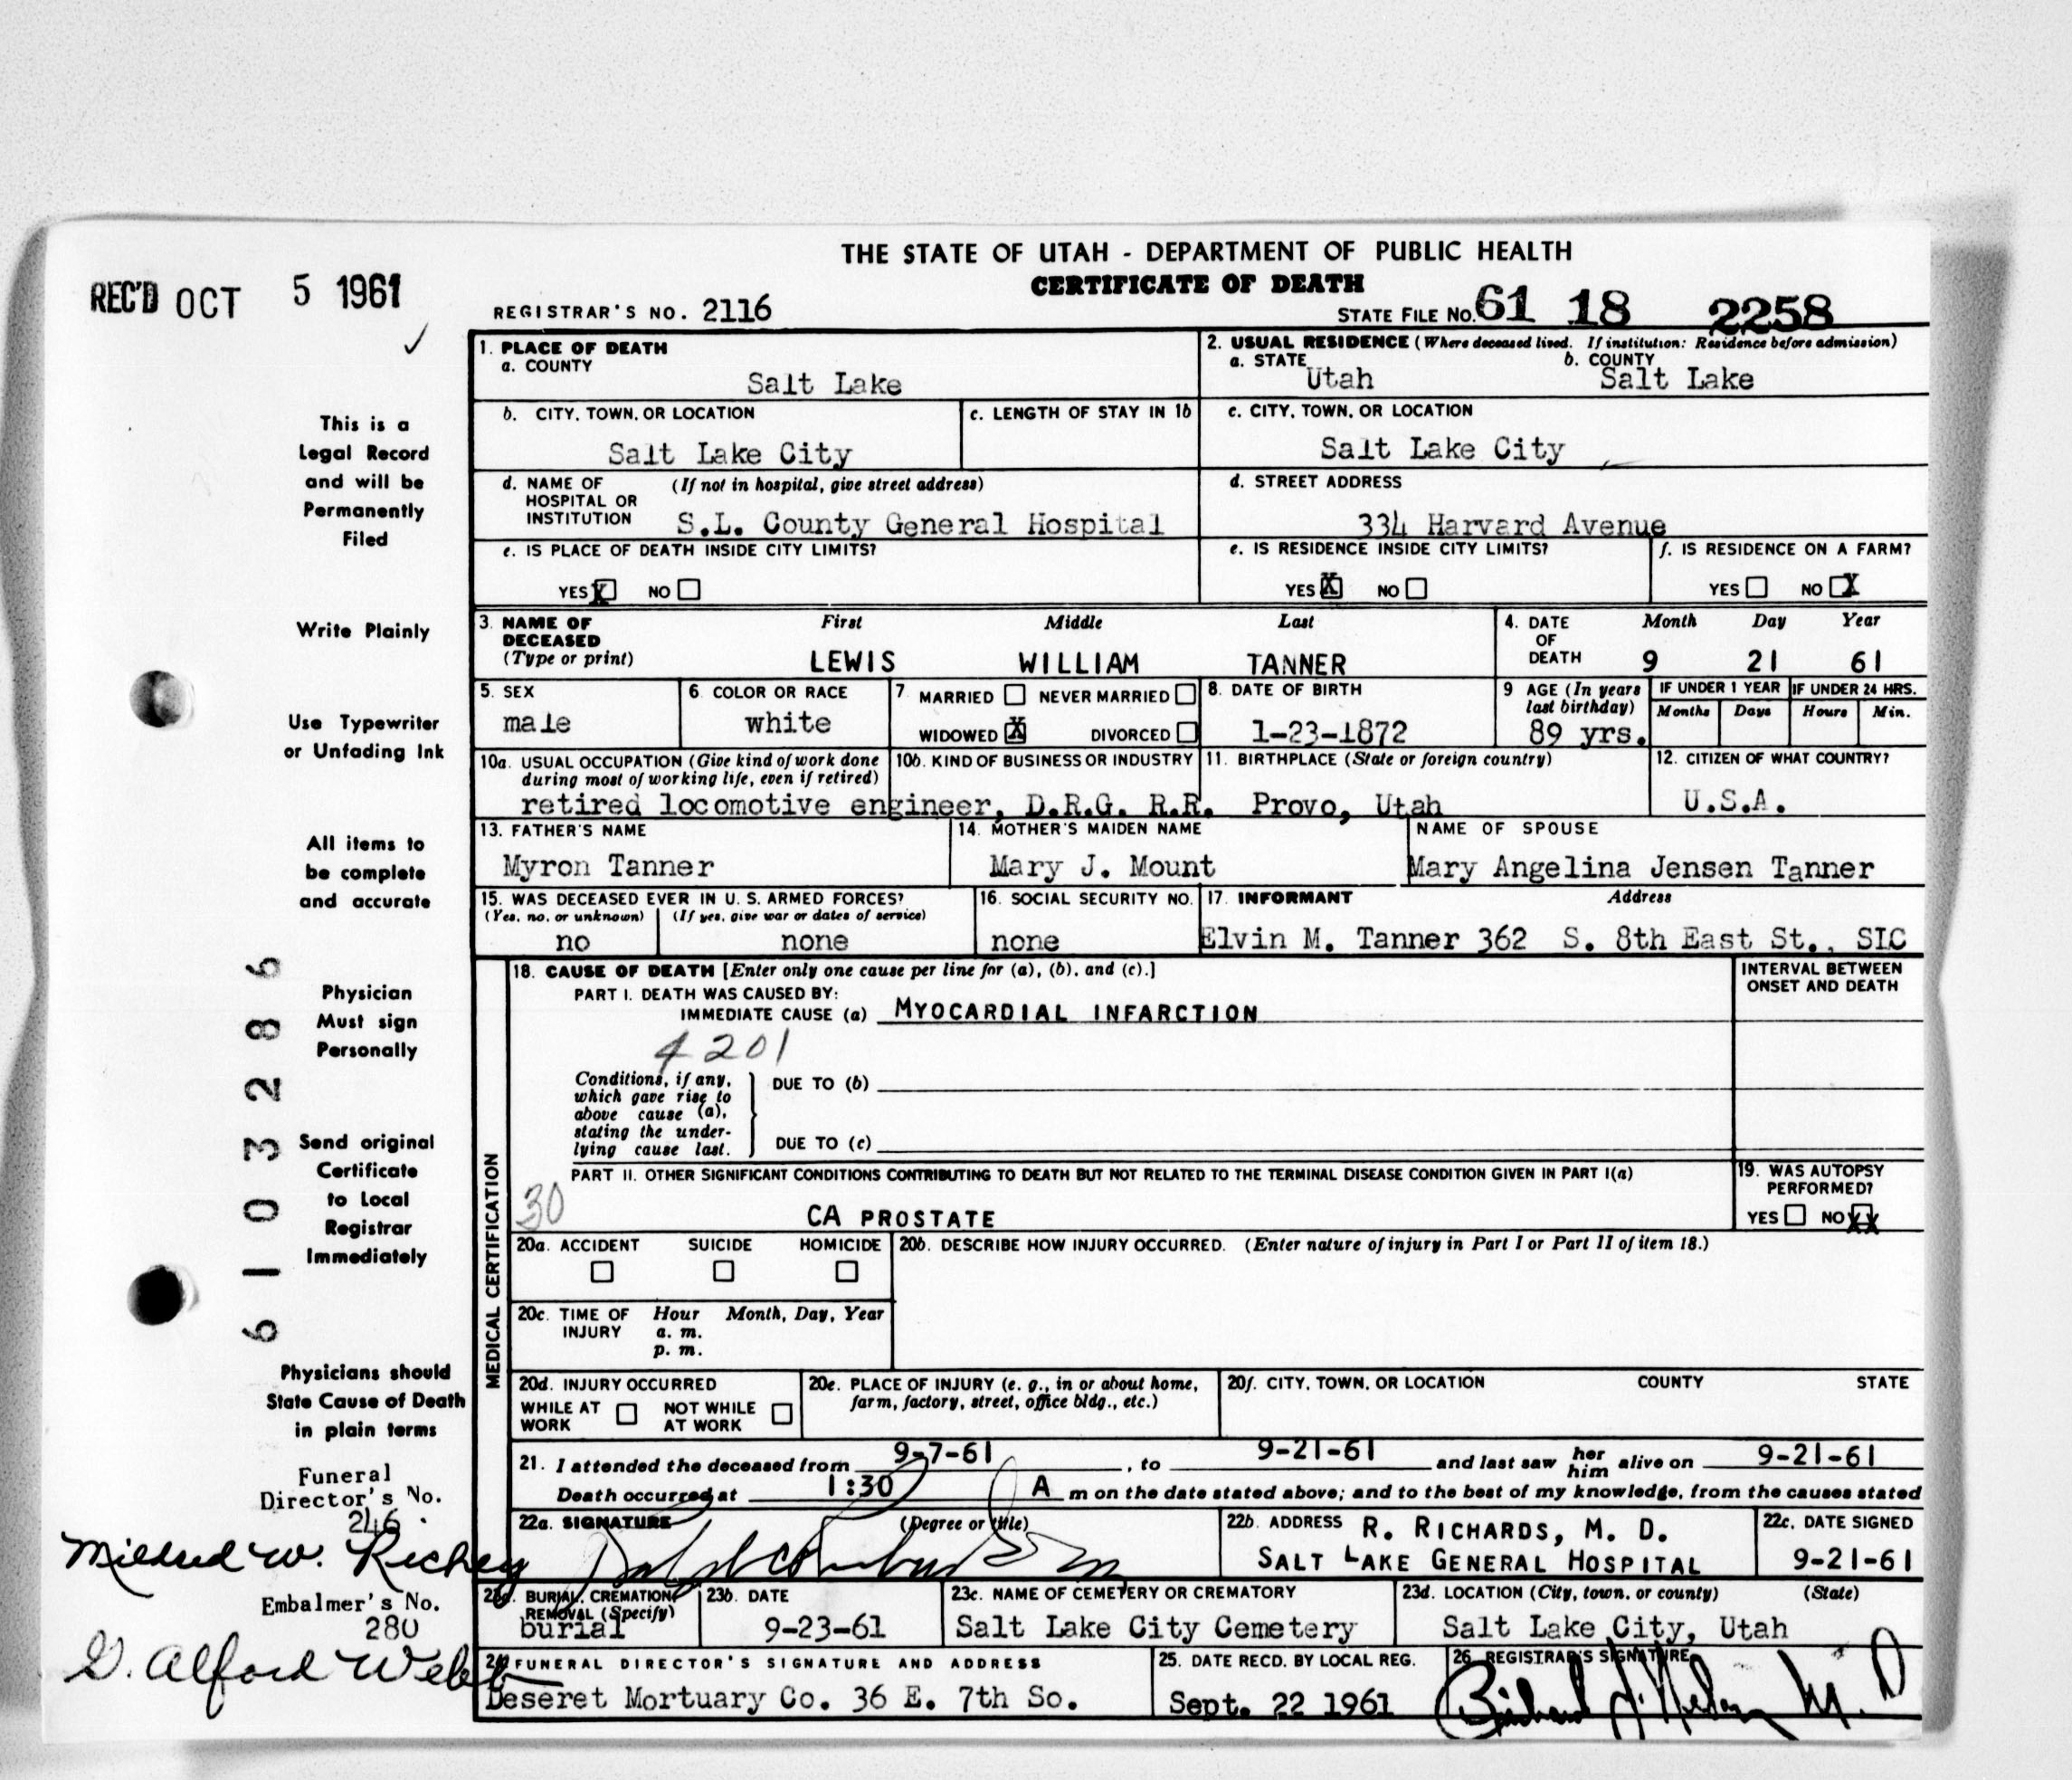 THE STATE OF UTAH - DEPARTMENT OF PUBLIC HEALTH
CERTIFICATE OF DEATH
REC'D OCT 5 1961
REGISTRAR'S NO. 2116
STATE FILE NO. 61 18 2258
This is a
Legal Record
and will be
Permanently
Filed
Write Plainly
Use Typewriter
or Unfading Ink
All items to
be complete
and accurate
Physician
Must sign
Personally
Send original
Certificate
to Local
Registrar
Immediately
Physicians should
State Cause of Death
in plain terms
Funeral
Director's No.
246
Mildred W. Richey
Embalmer's No.
280
G. Alford Webb
61 03286
1. PLACE OF DEATH
a. COUNTY
Salt Lake
2. USUAL RESIDENCE (Where deceased lived. If institution: Residence before admission)
a. STATE b. COUNTY
Utah Salt Lake
b. CITY, TOWN, OR LOCATION
Salt Lake City
c. LENGTH OF STAY IN 1b
c. CITY, TOWN, OR LOCATION
Salt Lake City
d. NAME OF (If not in hospital, give street address)
HOSPITAL OR
INSTITUTION S.L. County General Hospital
d. STREET ADDRESS
334 Harvard Avenue
e. IS PLACE OF DEATH INSIDE CITY LIMITS?
YES X NO
e. IS RESIDENCE INSIDE CITY LIMITS?
YES X NO
f. IS RESIDENCE ON A FARM?
YES NO X
3. NAME OF First Middle Last
DECEASED
(Type or print) LEWIS WILLIAM TANNER
4. DATE Month Day Year
OF
DEATH 9 21 61
5. SEX
male
6. COLOR OR RACE
white
7. MARRIED NEVER MARRIED
WIDOWED X DIVORCED
8. DATE OF BIRTH
1-23-1872
9 AGE (In years
last birthday)
89 yrs.
IF UNDER 1 YEAR
Months Days
IF UNDER 24 HRS.
Hours Min.
10a. USUAL OCCUPATION (Give kind of work done
during most of working life, even if retired)
10b. KIND OF BUSINESS OR INDUSTRY
retired locomotive engineer, D.R.G. R.R.
11. BIRTHPLACE (State or foreign country)
Provo, Utah
12. CITIZEN OF WHAT COUNTRY?
U.S.A.
13. FATHER'S NAME
Myron Tanner
14. MOTHER'S MAIDEN NAME
Mary J. Mount
NAME OF SPOUSE
Mary Angelina Jensen Tanner
15. WAS DECEASED EVER IN U. S. ARMED FORCES?
(Yes, no, or unknown) (If yes, give war or dates of service)
no none
16. SOCIAL SECURITY NO.
none
17. INFORMANT Address
Elvin M. Tanner 362 S. 8th East St., SLC
MEDICAL CERTIFICATION
18. CAUSE OF DEATH [Enter only one cause per line for (a), (b), and (c).]
INTERVAL BETWEEN
ONSET AND DEATH
PART I. DEATH WAS CAUSED BY:
IMMEDIATE CAUSE (a) MYOCARDIAL INFARCTION
4201
Conditions, if any,
which gave rise to
above cause (a),
stating the under-
lying cause last.
DUE TO (b)
DUE TO (c)
PART II. OTHER SIGNIFICANT CONDITIONS CONTRIBUTING TO DEATH BUT NOT RELATED TO THE TERMINAL DISEASE CONDITION GIVEN IN PART I(a)
30
CA PROSTATE
19. WAS AUTOPSY
PERFORMED?
YES NO XX
20a. ACCIDENT SUICIDE HOMICIDE
20b. DESCRIBE HOW INJURY OCCURRED. (Enter nature of injury in Part I or Part II of item 18.)
20c. TIME OF Hour Month, Day, Year
INJURY a. m.
p. m.
20d. INJURY OCCURRED
WHILE AT NOT WHILE
WORK AT WORK
20e. PLACE OF INJURY (e. g., in or about home,
farm, factory, street, office bldg., etc.)
20f. CITY, TOWN, OR LOCATION COUNTY STATE
21. I attended the deceased from 9-7-61, to 9-21-61 and last saw her him alive on 9-21-61
Death occurred at 1:30 A m on the date stated above; and to the best of my knowledge, from the causes stated
22a. SIGNATURE (Degree or title)
22b. ADDRESS R. RICHARDS, M. D.
SALT LAKE GENERAL HOSPITAL
22c. DATE SIGNED
9-21-61
23a. BURIAL, CREMATION,
REMOVAL (Specify)
burial
23b. DATE
9-23-61
23c. NAME OF CEMETERY OR CREMATORY
Salt Lake City Cemetery
23d. LOCATION (City, town, or county) (State)
Salt Lake City, Utah
24 FUNERAL DIRECTOR'S SIGNATURE AND ADDRESS
Deseret Mortuary Co. 36 E. 7th So.
25. DATE RECD. BY LOCAL REG.
Sept. 22 1961
26. REGISTRAR'S SIGNATURE